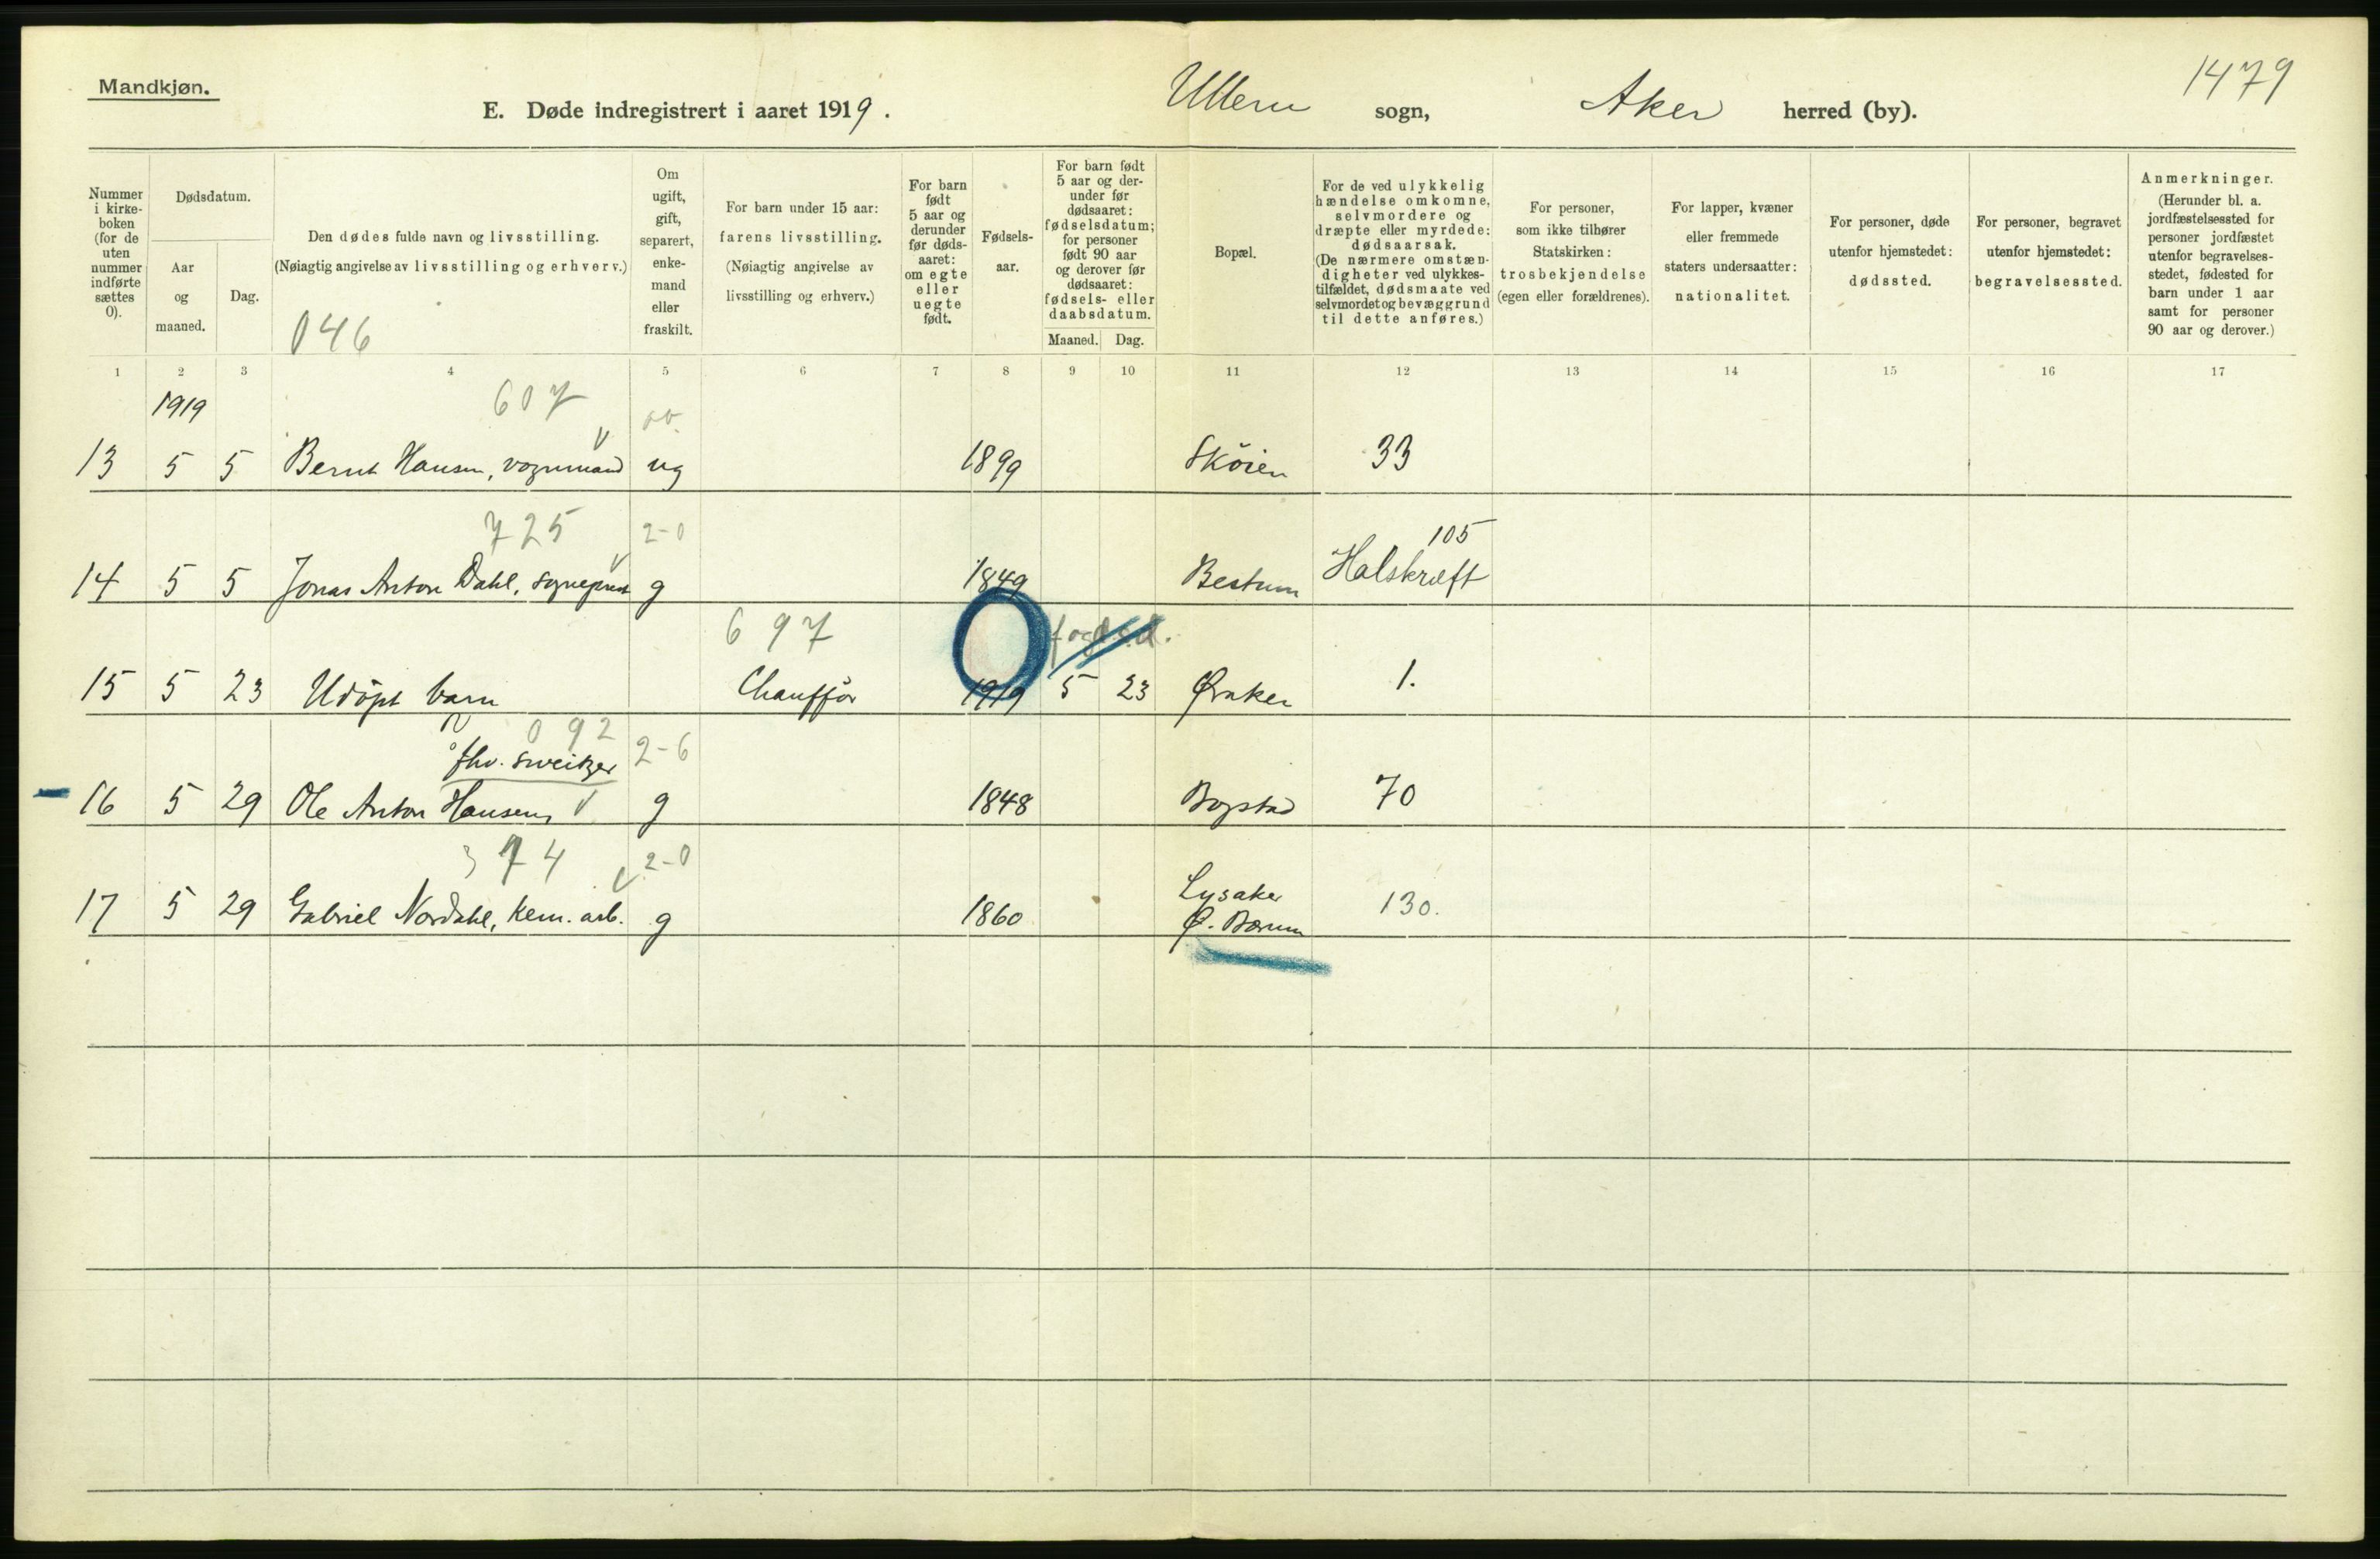 Mandkjøn.
E. Døde indregistrert i aaret 1919. Ullern sogn, Aker herred (by).
1479
Nummer i kirke-
boken
(for de
uten
nummer
indførte
sættes
0).
Dødsdatum.
Aar
og
maaned.
Dag.
Den dødes fulde navn og livsstilling.
(Nøiagtig angivelse av livsstilling og erhverv.)
046
Om
ugift,
gift,
separert,
enke-
mand
eller
fraskilt.
For barn under 15 aar:
farens livsstilling.
(Nøiagtig angivelse av
livsstilling og erhverv.)
For barn
født
5 aar og
derunder
før døds-
aaret:
om egte
eller
uegte
født.
Fødsels-
aar.
For barn født
5 aar og der-
under før
dødsaaret:
fødselsdatum;
for personer
født 90 aar
og derover før
dødsaaret:
fødsels- eller
daabsdatum.
Maaned. Dag.
Bopæl.
For de ved ulykkelig
hændelse omkomne,
selvmordere og
dræpte eller myrdede:
dødsaarsak.
(De nærmere omstæn-
digheter ved ulykkes-
tilfældet, dødsmaate ved
selvmordet og bevæggrund
til dette anføres.)
For personer,
som ikke tilhører
Statskirken:
trosbekjendelse
(egen eller forældrenes).
For lapper, kvæner
eller fremmede
staters undersaatter:
nationalitet.
For personer, døde
utenfor hjemstedet:
dødssted.
For personer, begravet
utenfor hjemstedet:
begravelsessted.
Anmerkninger.
(Herunder bl. a.
jordfæstelsessted for
personer jordfæstet
utenfor begravelses-
stedet, fødested for
barn under 1 aar
samt for personer
90 aar og derover.)
1 2 3 4 5 6 7 8 9 10 11 12 13 14 15 16 17
1919 607
13 5 5 Bernt Hansen, vognmand ug 1899 Sköien 33
725 2-0 105
14 5 5 Jonas Anton Dahl, sogneprest g 1849 Bestum Halskræft
697
15 5 23 Udöpt barn Chaufför 1919 5 23 Øraker 1.
092
fhv. sveitzer 2-6
16 5 29 Ole Anton Hansen, g 1848 Bogstad 70
374 2-0
Lysaker
17 5 29 Gabriel Nordahl, kem. arb. g 1860 Ø. Bærum 130.